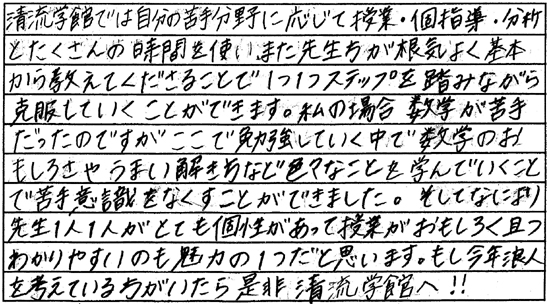 清流学館では自分の苦手分野に応じて授業・個指導・分析
とたくさんの時間を使いまた先生方が根気よく基本
から教えてくださることで1つ1つステップを踏みながら
克服していくことができます。私の場合 数学が苦手
だったのですがここで勉強していく中で数学のお
もしろさやうまい解き方など色々なことを学んでいくこと
で苦手意識をなくすことができました。そしてなにより
先生1人1人がとても個性があって授業がおもしろく且つ
わかりやすいのも魅力の1つだと思います。もし今年浪人
を考えている方がいたら是非清流学館へ!!